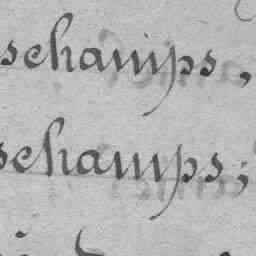 schamps,
schamps;